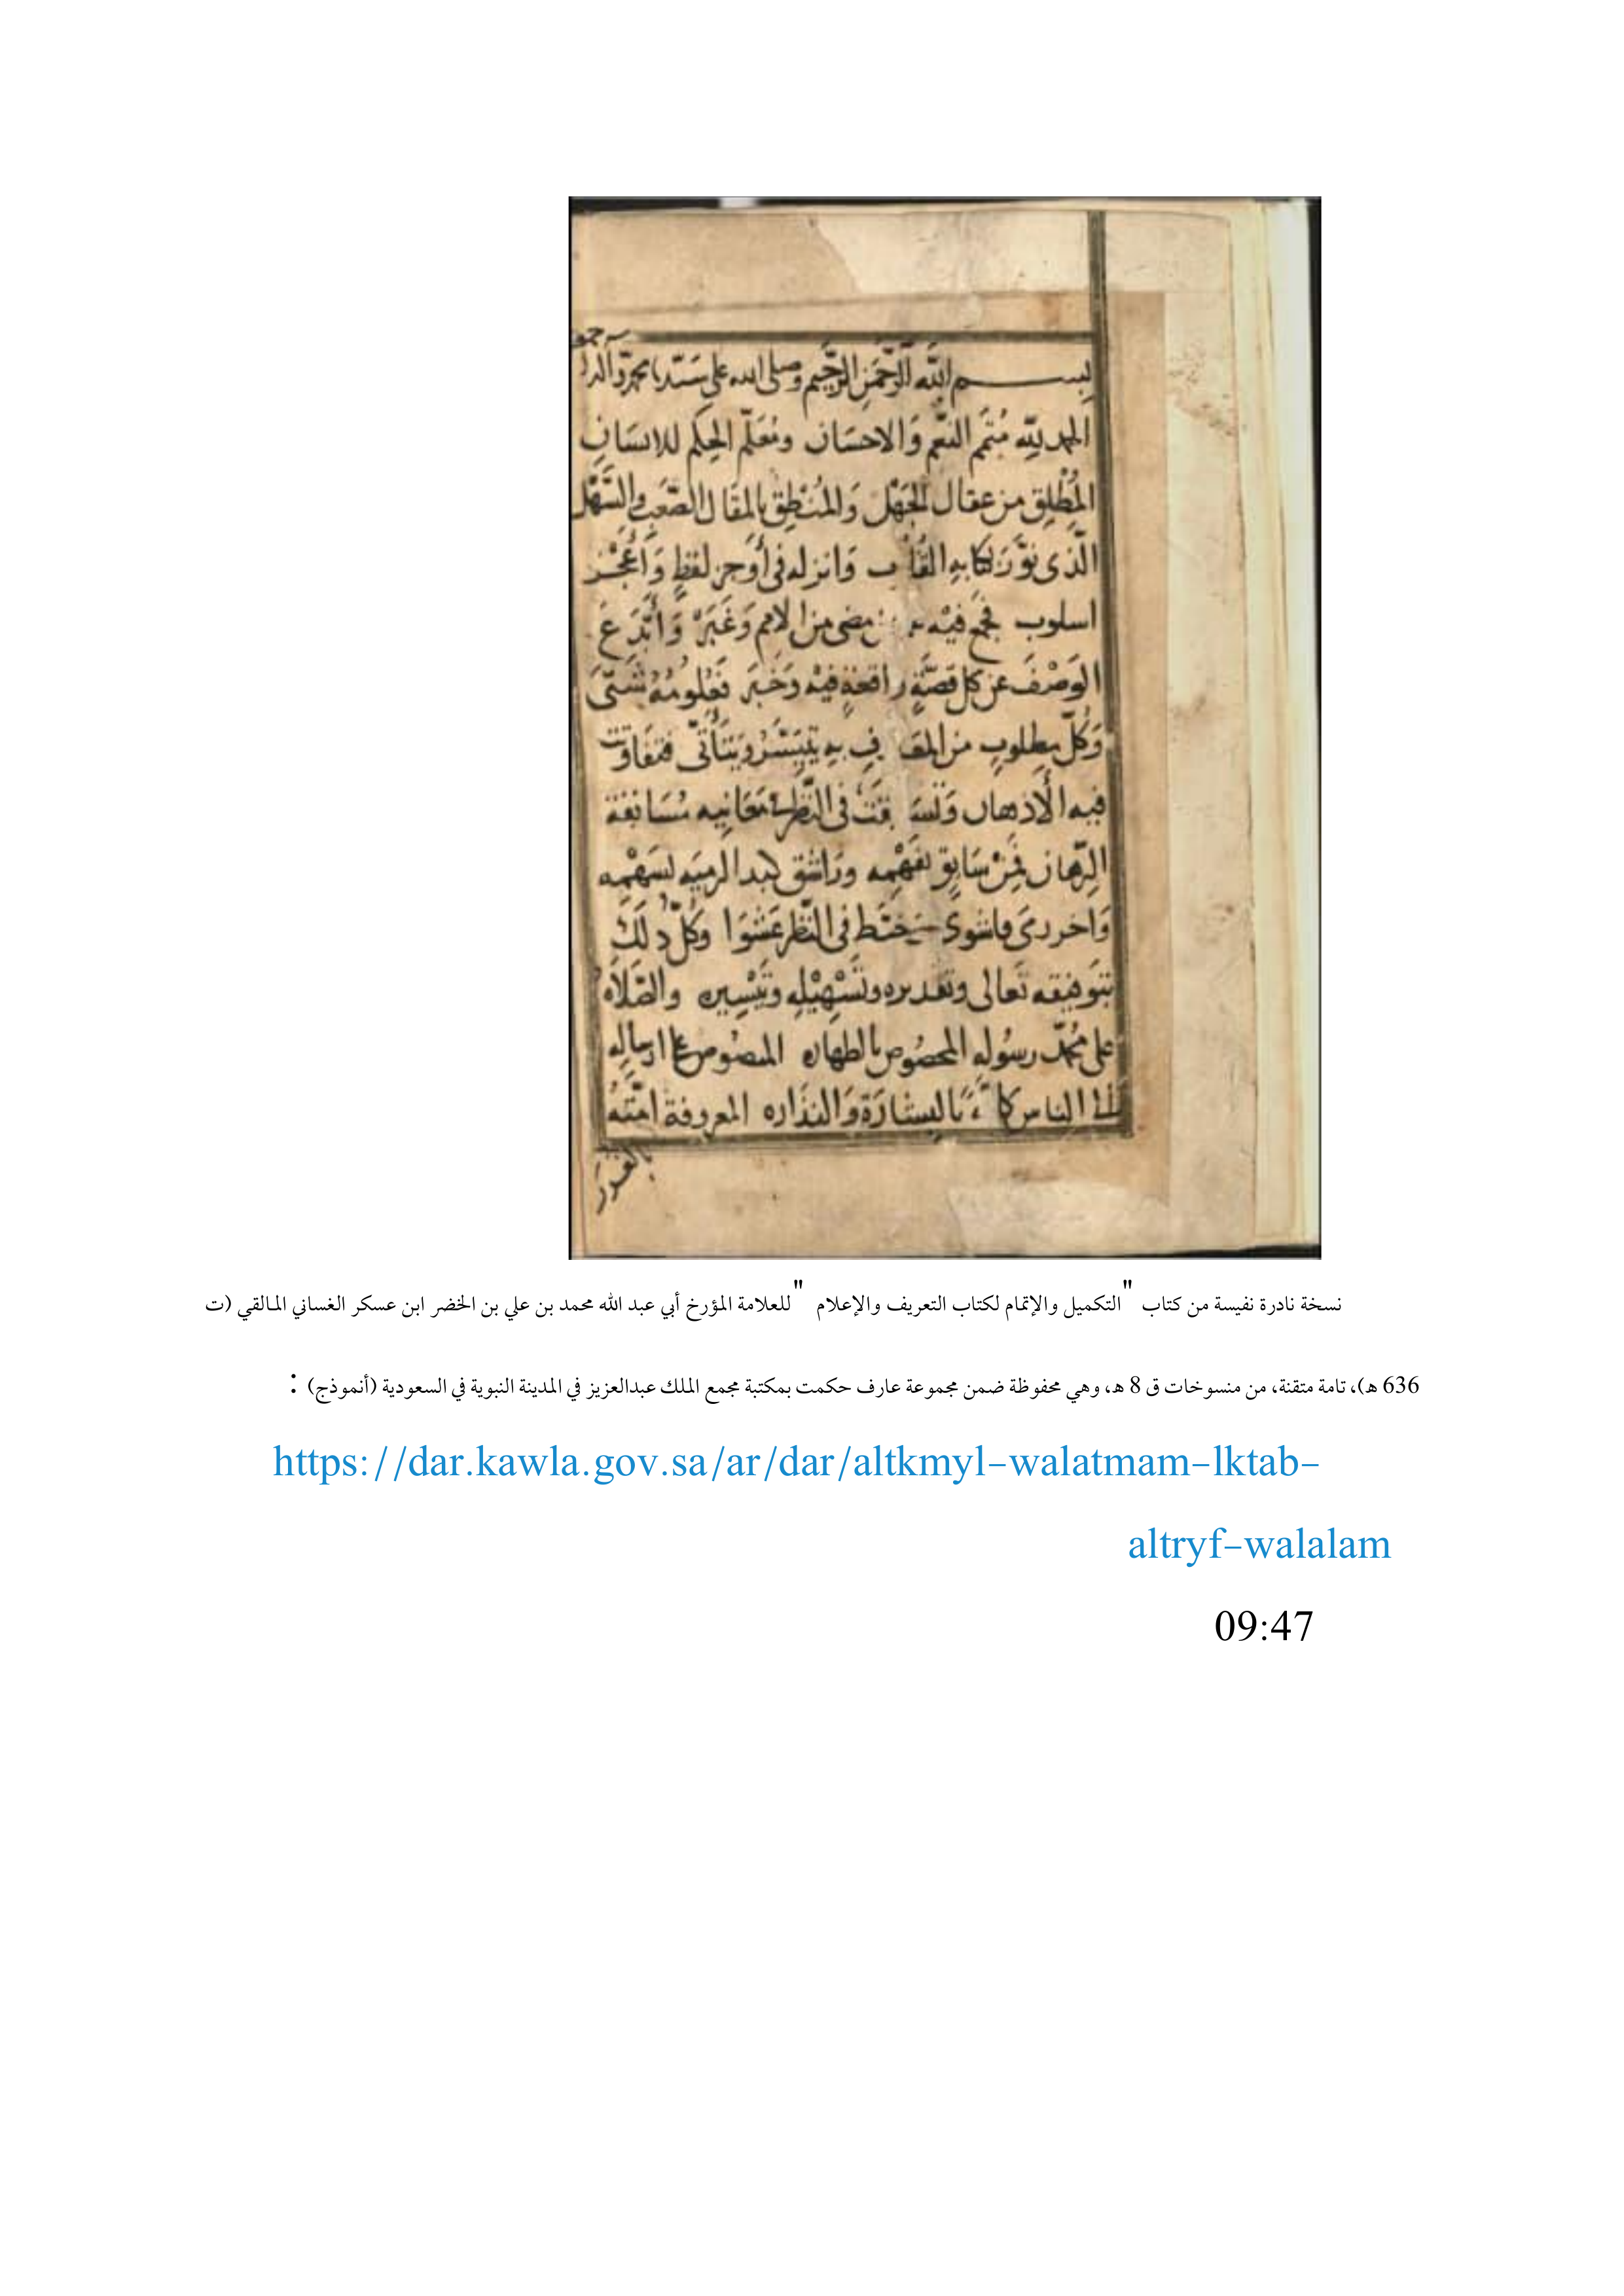 بســـــم الله الرَّحمَنِ الرَّحِيمِ وصلى الله على سَيّدنا محمدٍ وآله
الحمد لله مُتِمّ النِّعَم وَالاحسَان ومُعَلّم الحِكَم للانسَانِ
المُطْلِق من عقال الجَهْل وَالمُنْطِق بالمقَال الصَّعْب والسَّهْل
الَّذى نَوَّرَ بكتابه القُلوب وَانزله فى أَوجز لفظٍ وَأَعْجَز
اسلوب فجمع فيْه مضى من الامم وَغَبَرْ وَأَبْدَعَ
الوَصْفَ عن كل قصَّةٍ واقعةٍ فيْه وَخَبَر فعُلُومُهُ شَتَّى
وَكُلّ مطلوبٍ من به يتيَسَّرُ وَيَتَأَتَّى فتفَاوَتَت
فيه الأَذهان وَتسَابقت فى النَّظر معَانيه مُسَابقة
الرِّهَان فمِنْ سَابِقٍ بفَهْمه ورَاشق كبد الرميه بسَهْمِه
وَاخر رمَى فاشوى فى النَّظر عَشْوَا وَكُلّ ذلكَ
بتوفيقه تعَالى وتقديره وتَسْهِيْلِه وتَيْسِيره والصَّلاَه
على مُحَمَّد رسُوله المخصُوص بالطهاره المنصُوص على ارساله
الى الناس كافةً بالبشَارَة وَالنذَاره المعروفة امّته
نسخة نادرة نفيسة من كتاب "التكميل والإتمام لكتاب التعريف والإعلام" للعلامة المؤرخ أبي عبد الله محمد بن علي بن الخضر ابن عسكر الغساني المالقي (ت
636 هـ)، تامة متقنة، من منسوخات ق 8 هـ، وهي محفوظة ضمن مجموعة عارف حكمت بمكتبة مجمع الملك عبدالعزيز في المدينة النبوية في السعودية (أنموذج) :
https://dar.kawla.gov.sa/ar/dar/altkmyl-walatmam-lktab-
altryf-walalam
09:47